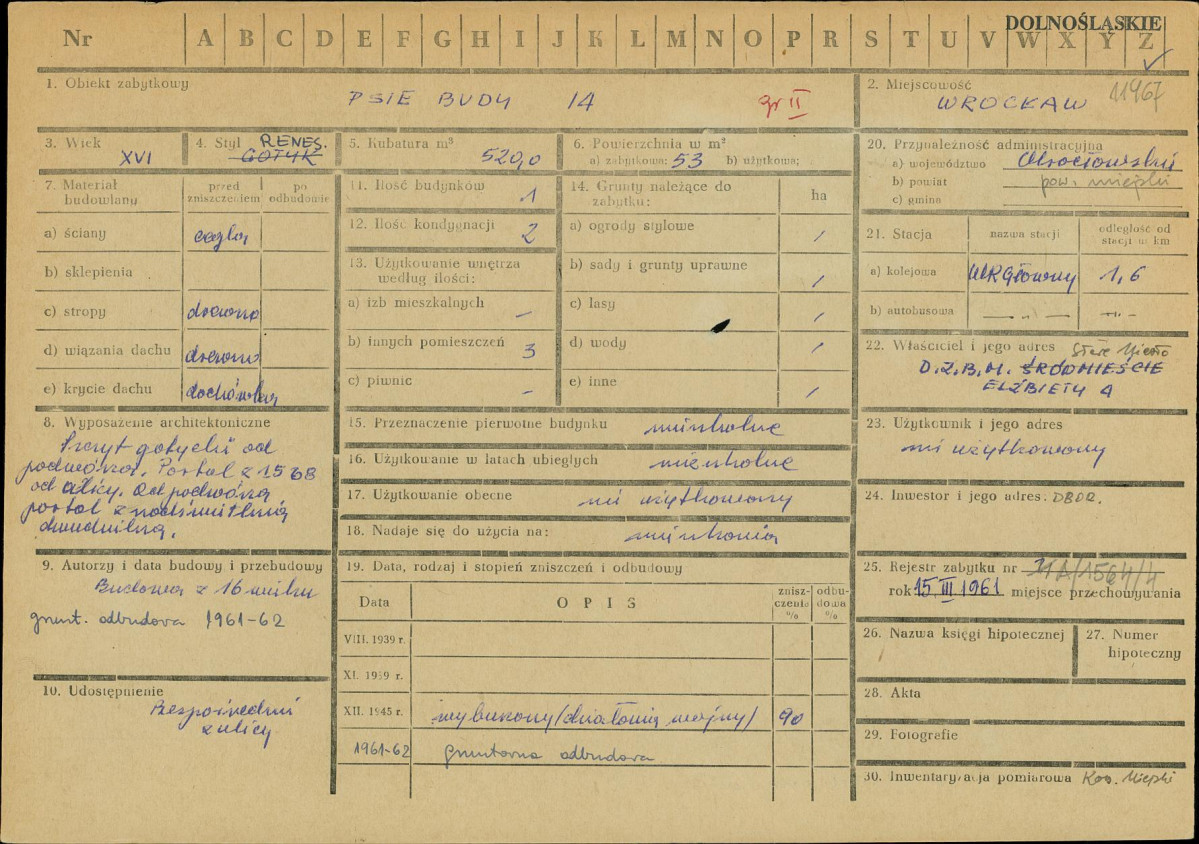 DOLNOŚLĄSKIE
Nr A B C D E F G H I J K L M N O P R S T U V W X Y Z
1. Obiekt zabytkowy
PSIE BUDY 14
gr II
2. Miejscowość
11967
WROCŁAW
3. Wiek
XVI
4. Styl RENES.
GOTYK
5. Kubatura m³
520,0
6. Powierzchnia w m²
a) zabytkowa: 53 b) użytkowa:
20. Przynależność administracyjna
a) województwo Wrocławskie
b) powiat pow. miejski
c) gmina
7. Materiał budowlany
przed zniszczeniem
po odbudowie
a) ściany cegła
b) sklepienia
c) stropy drewno
d) wiązania dachu drewno
e) krycie dachu dachówka
11. Ilość budynków 1
12. Ilość kondygnacji 2
13. Użytkowanie wnętrza według ilości:
a) izb mieszkalnych –
b) innych pomieszczeń 3
c) piwnic –
14. Grunty należące do zabytku:
ha
a) ogrody stylowe /
b) sady i grunty uprawne /
c) lasy /
d) wody /
e) inne /
21. Stacja
nazwa stacji
odległość od stacji w km
a) kolejowa Główny 1,6
b) autobusowa — „ — —„—
22. Właściciel i jego adres Stare Miasto
D.Z.B.M. ŚRÓDMIEŚCIE
ELŻBIETY 4
8. Wyposażenie architektoniczne
Szczyt gotycki od
podwórza. Portal z 1568
od ulicy. Od podwórza
portal z nadświetlnią
dwudzielną.
15. Przeznaczenie pierwotne budynku mieszkalne
16. Użytkowanie w latach ubiegłych mieszkalne
17. Użytkowanie obecne nie użytkowany
18. Nadaje się do użycia na: mieszkania
23. Użytkownik i jego adres
nie użytkowany
24. Inwestor i jego adres: DBOR.
9. Autorzy i data budowy i przebudowy
Budowa z 16 wieku
grunt. odbudowa 1961-62
10. Udostępnienie
Bezpośrednio
z ulicy
19. Data, rodzaj i stopień zniszczeń i odbudowy
Data
OPIS
zniszczenia %
odbudowa %
VIII. 1939 r.
XI. 1939 r.
XII. 1945 r. wybuchony /działania wojny/ 90
1961-62 gruntowna odbudowa
25. Rejestr zabytku nr A/1564/4
rok 15.III.1961 miejsce przechowywania
26. Nazwa księgi hipotecznej
27. Numer hipoteczny
28. Akta
29. Fotografie
30. Inwentaryzacja pomiarowa Kons. Miejski